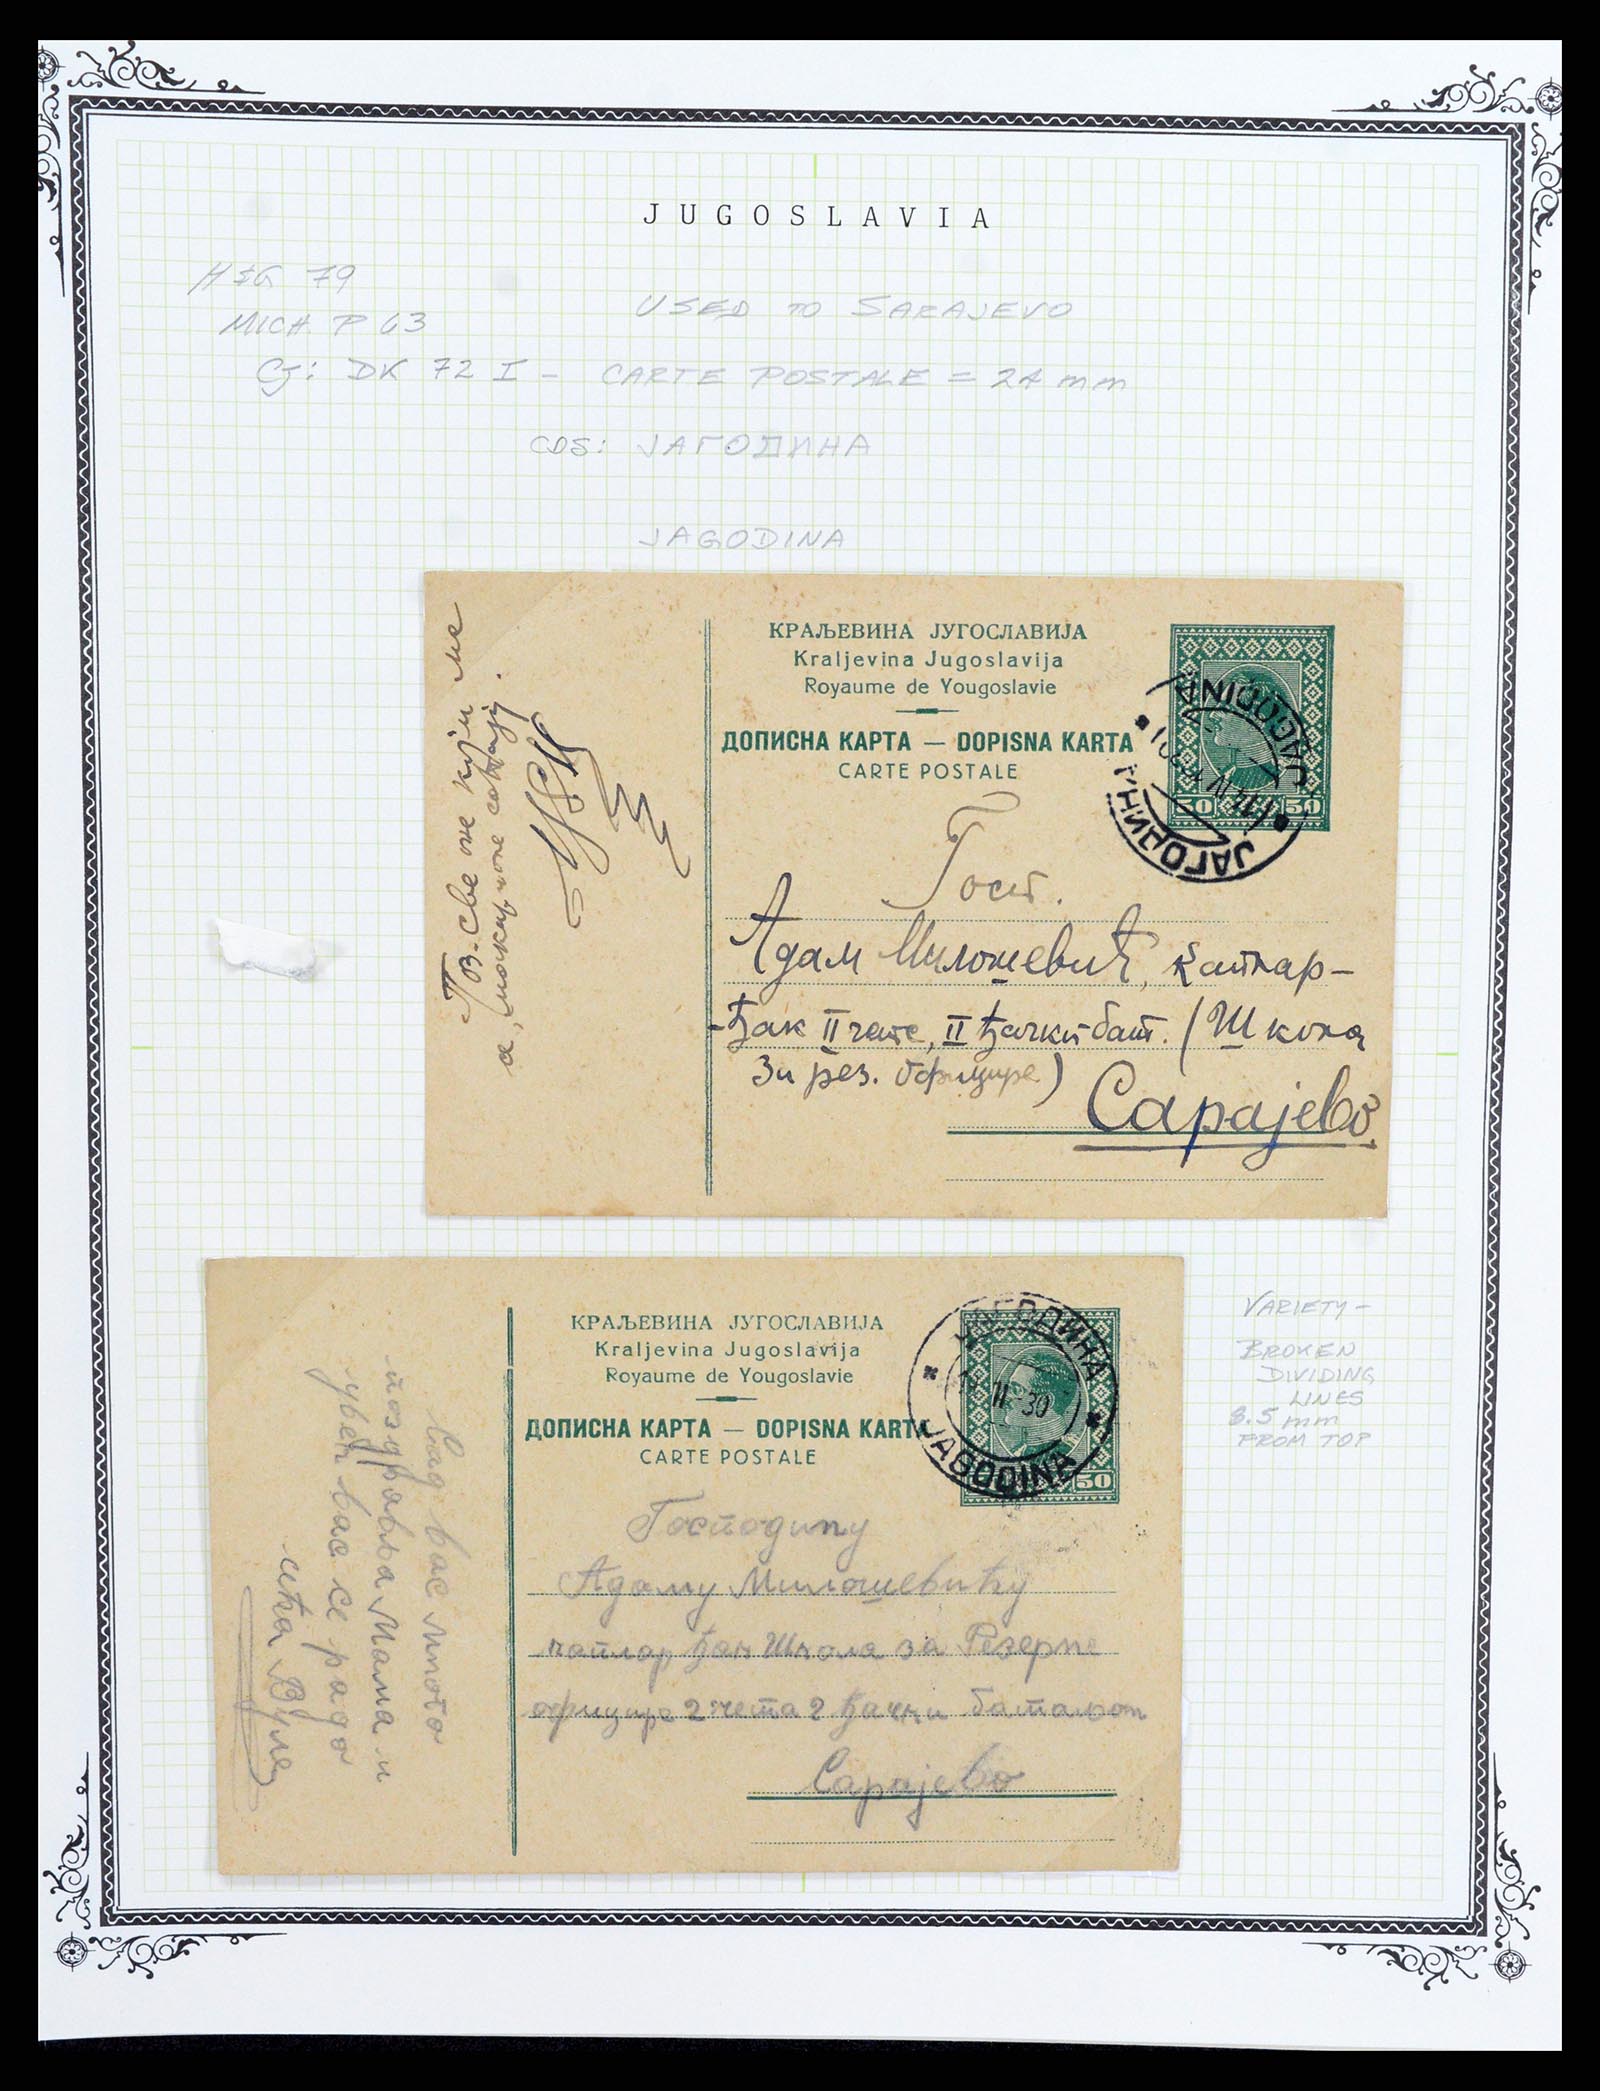 JUGOSLAVIA
H&G 79
USED TO SARAJEVO
MICH P 63
Cj: DK 72 I - CARTE POSTALE = 24 mm
CDS: ЈАГОДИНА
JAGODINA
КРАЉЕВИНА ЈУГОСЛАВИЈА
Kraljevina Jugoslavija
Royaume de Yougoslavie
ДОПИСНА КАРТА — DOPISNA KARTA
CARTE POSTALE
50 50
JAGODINA
ЈАГОДИНА
Поз. све
Госп.
Адам Милошевић, каплар-
-ђак II чете, II ђачки бат. (Школа
за рез. официре)
Сарајево
КРАЉЕВИНА ЈУГОСЛАВИЈА
Kraljevina Jugoslavija
Royaume de Yougoslavie
ДОПИСНА КАРТА — DOPISNA KARTA
CARTE POSTALE
50
ЈАГОДИНА
30
JAGODINA
вас много
поздравља Мама и
увек вас се радо
сећа
Господину
Адаму Милошевићу
каплар ђак Школа за Резерне
официре 2 чета 2 ђачки батаљон
Сарајево
VARIETY -
BROKEN
DIVIDING
LINES
8.5 mm
FROM TOP